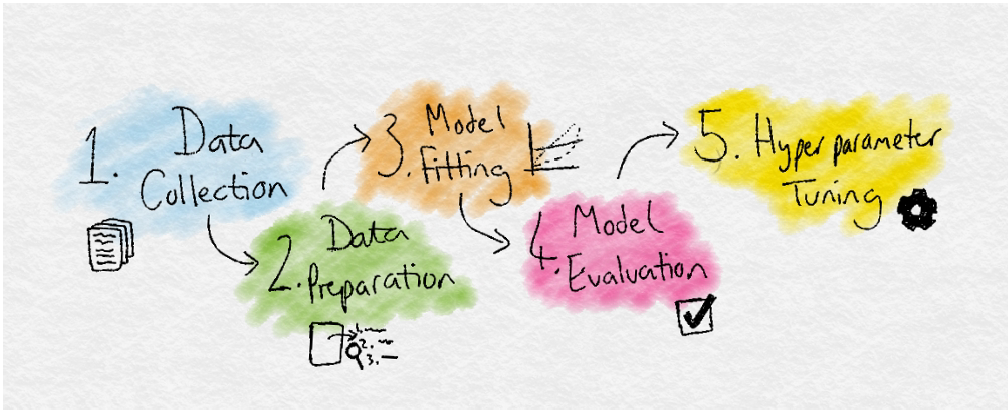 1. Data
Collection
2. Data
Preparation
1.
2.
3.
3. Model
Fitting
4. Model
Evaluation
5. Hyperparameter
Tuning